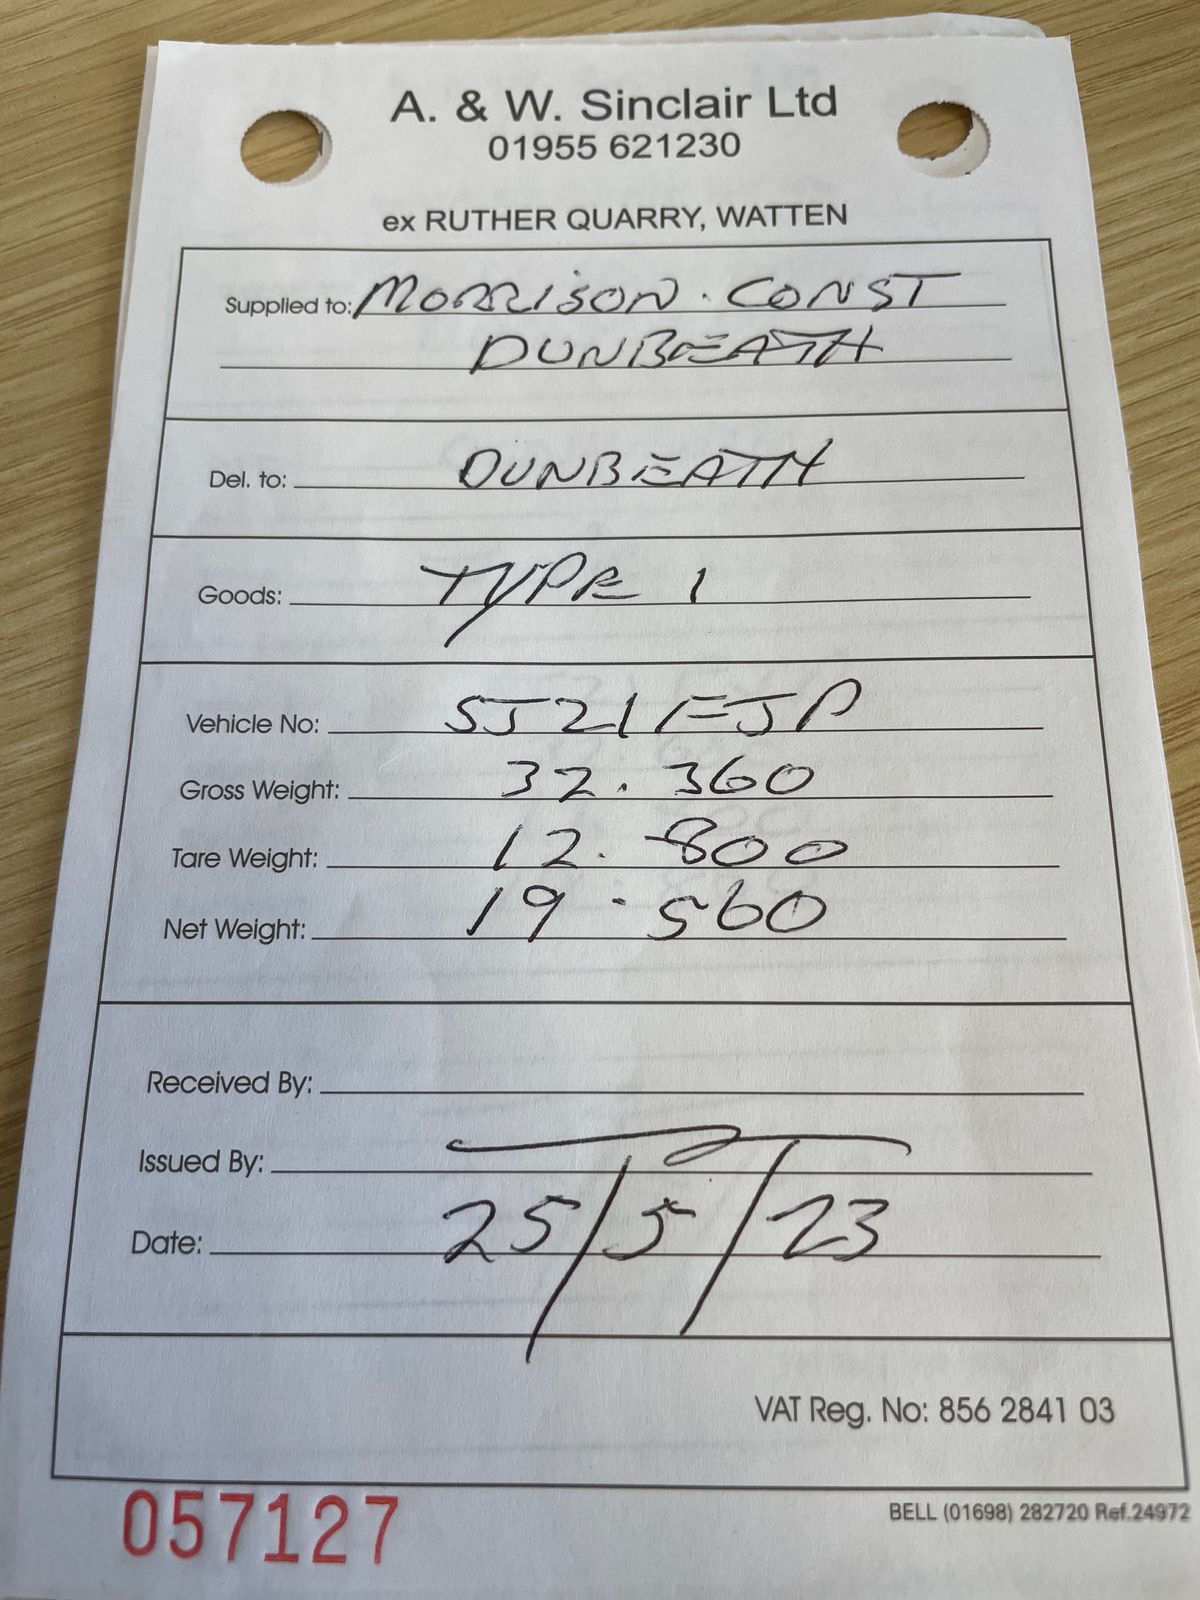 A. & W. Sinclair Ltd
01955 621230
ex RUTHER QUARRY, WATTEN
Supplied to: MORRISON. CONST
DUNBEATH
Del. to: DUNBEATH
Goods: TYPE 1
Vehicle No: SJ21FJP
Gross Weight: 32.360
Tare Weight: 12.800
Net Weight: 19.560
Received By:
Issued By:
Date: 25/5/23
VAT Reg. No: 856 2841 03
057127
BELL (01698) 282720 Ref.24972